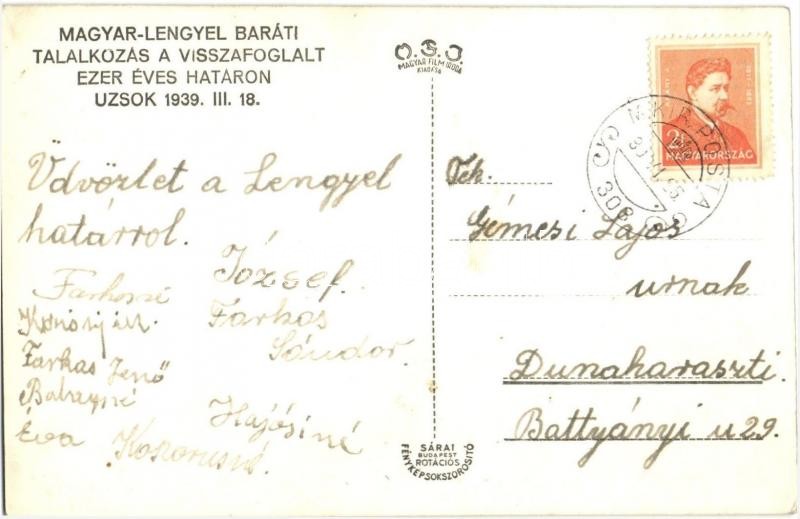 MAGYAR-LENGYEL BARÁTI
TALALKOZÁS A VISSZAFOGLALT
EZER ÉVES HATÁRON
UZSOK 1939. III. 18.
O.S.J.
MAGYAR FILM IRODA
KIADÁSA
2
MAGYARORSZÁG
M. KIR. POSTA
308
Üdvözlet a Lengyel
határról.
József.
Farkasné
Farkas
Sándor.
Farkas Jenő
Éva
Hajósiné
Koszorusné
Tek.
Gémesi Lajos
urnak
Dunaharaszti.
Battyányi u 29.
SÁRAI
BUDAPEST
ROTÁCIÓS
FÉNYKÉPSOKSZOROSITÓ